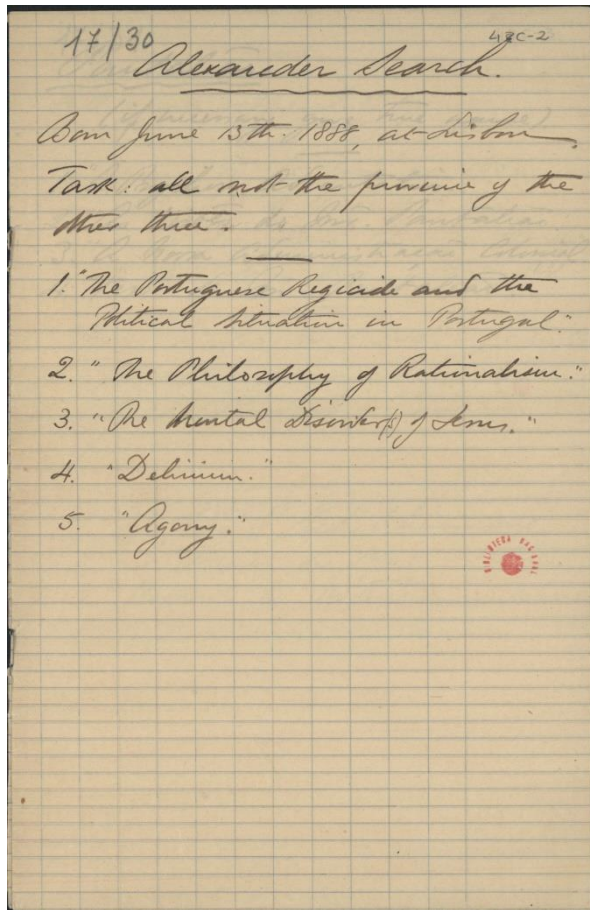 17/30
48C-2
Alexander Search.
Born June 13th. 1888, at Lisbon.
Task: all not the province of the
other three.
1. "The Portuguese Regicide and the
Political Situation in Portugal."
2. "The Philosophy of Rationalism."
3. "The Mental Disorder(s) of Jesus."
4. "Delirium."
5. "Agony."
BIBLIOTECA NACIONAL